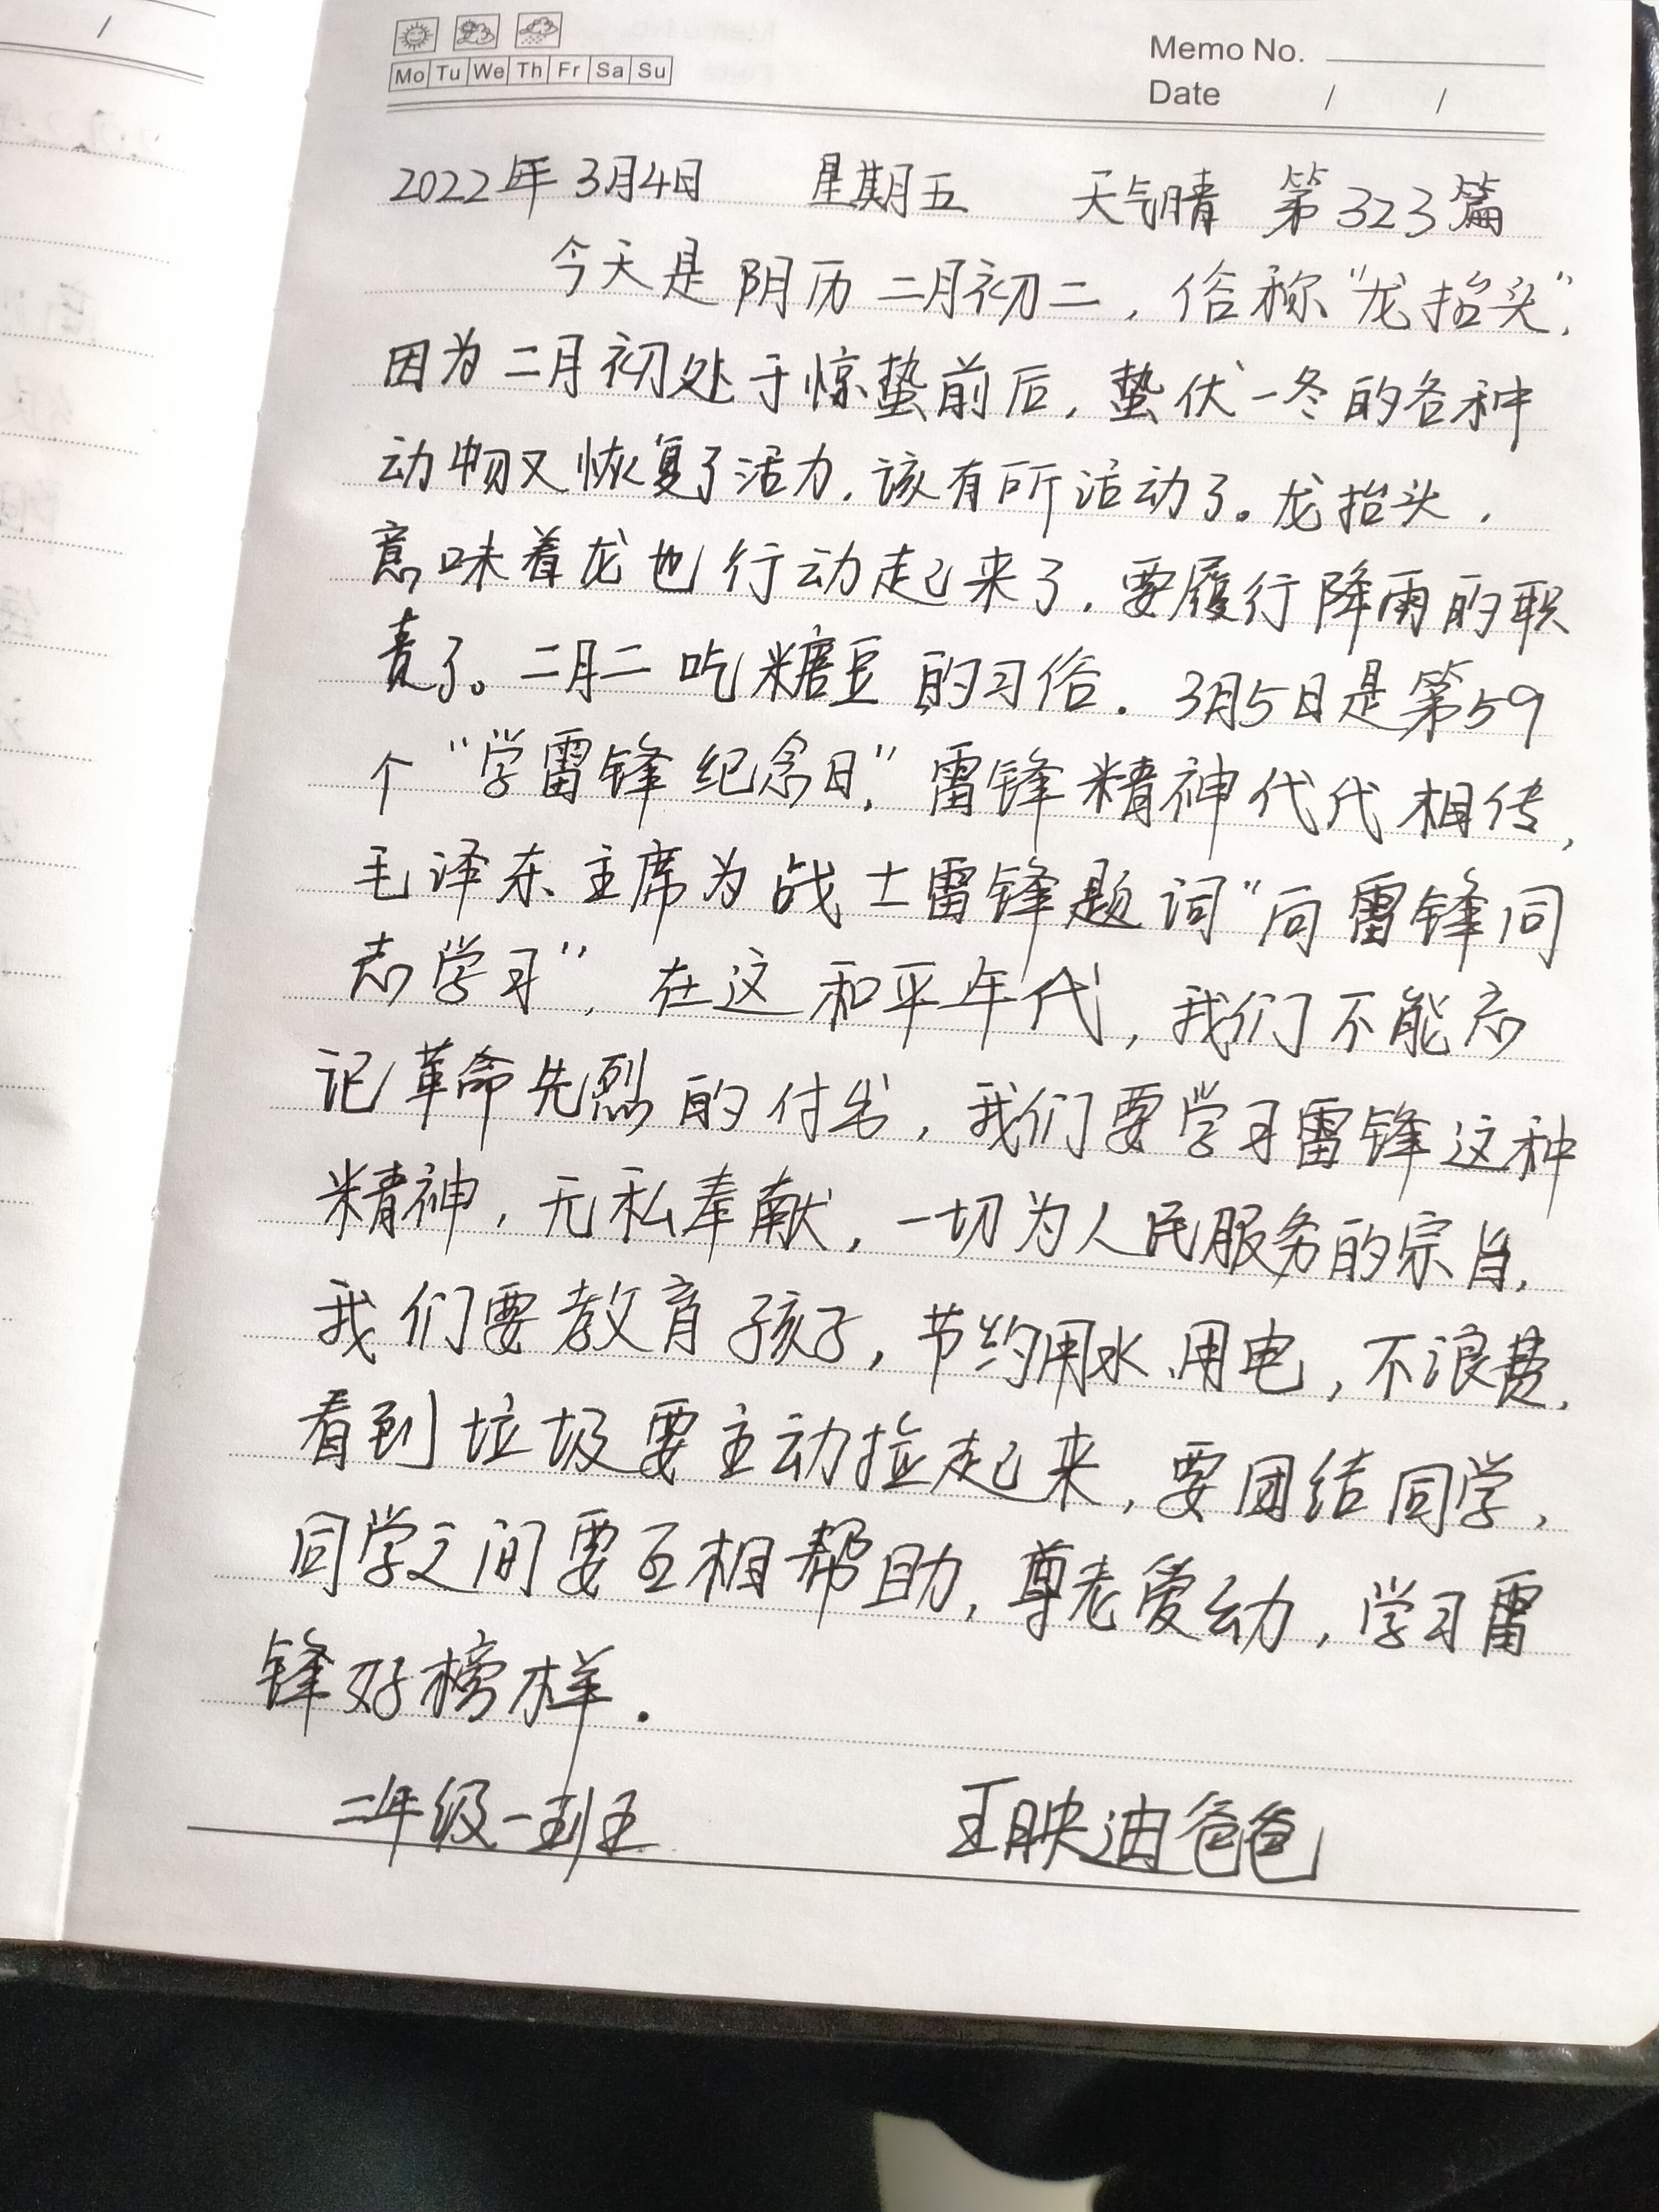 Mo Tu We Th Fr Sa Su
Memo No.
Date / /
2022年3月4日 星期五 天气晴 第323篇
今天是阴历二月初二，俗称"龙抬头"，
因为二月初处于惊蛰前后，蛰伏一冬的各种
动物又恢复了活力，该有所活动了。龙抬头，
意味着龙也行动起来了，要履行降雨的职
责了。二月二吃糖豆的习俗．3月5日是第59
个"学雷锋纪念日"，雷锋精神代代相传，
毛泽东主席为战士雷锋题词"向雷锋同
志学习"，在这和平年代，我们不能忘
记革命先烈的付出，我们要学习雷锋这种
精神，无私奉献，一切为人民服务的宗旨，
我们要教育孩子，节约用水、用电，不浪费，
看到垃圾要主动捡起来，要团结同学，
同学之间要互相帮助，尊老爱幼，学习雷
锋好榜样．
二年级一班 王映迪爸爸